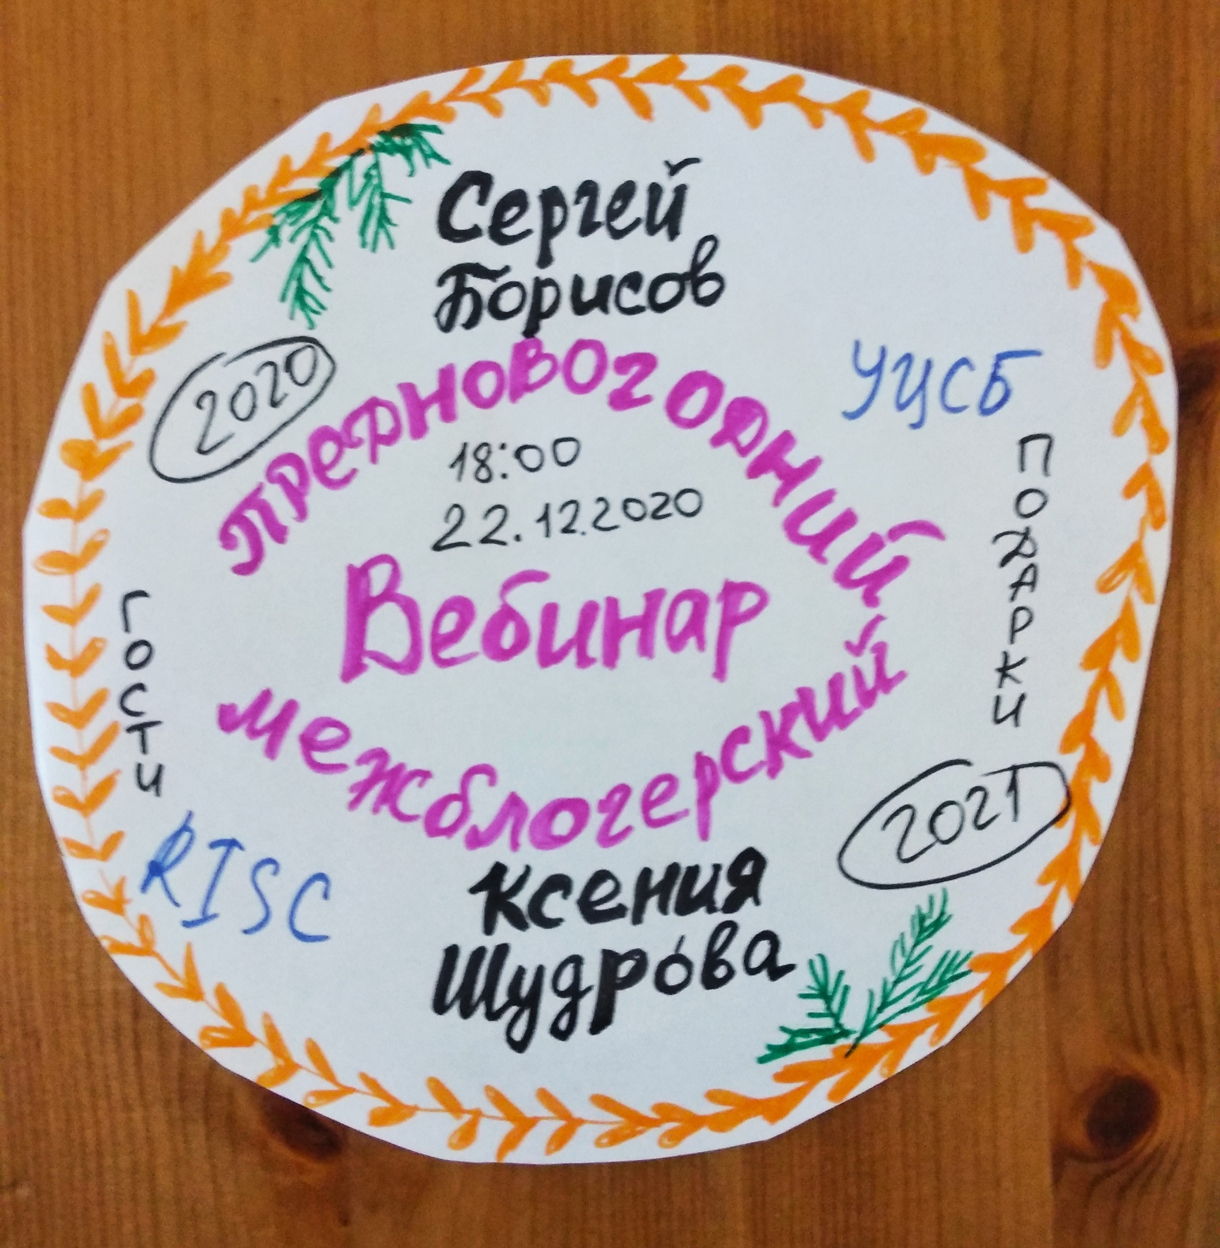 Сергей
Борисов
2020
предновогодний
УЦСБ
18:00
22.12.2020
Вебинар
межблогерский
гости
подарки
RISC
2021
Ксения
Шудрова